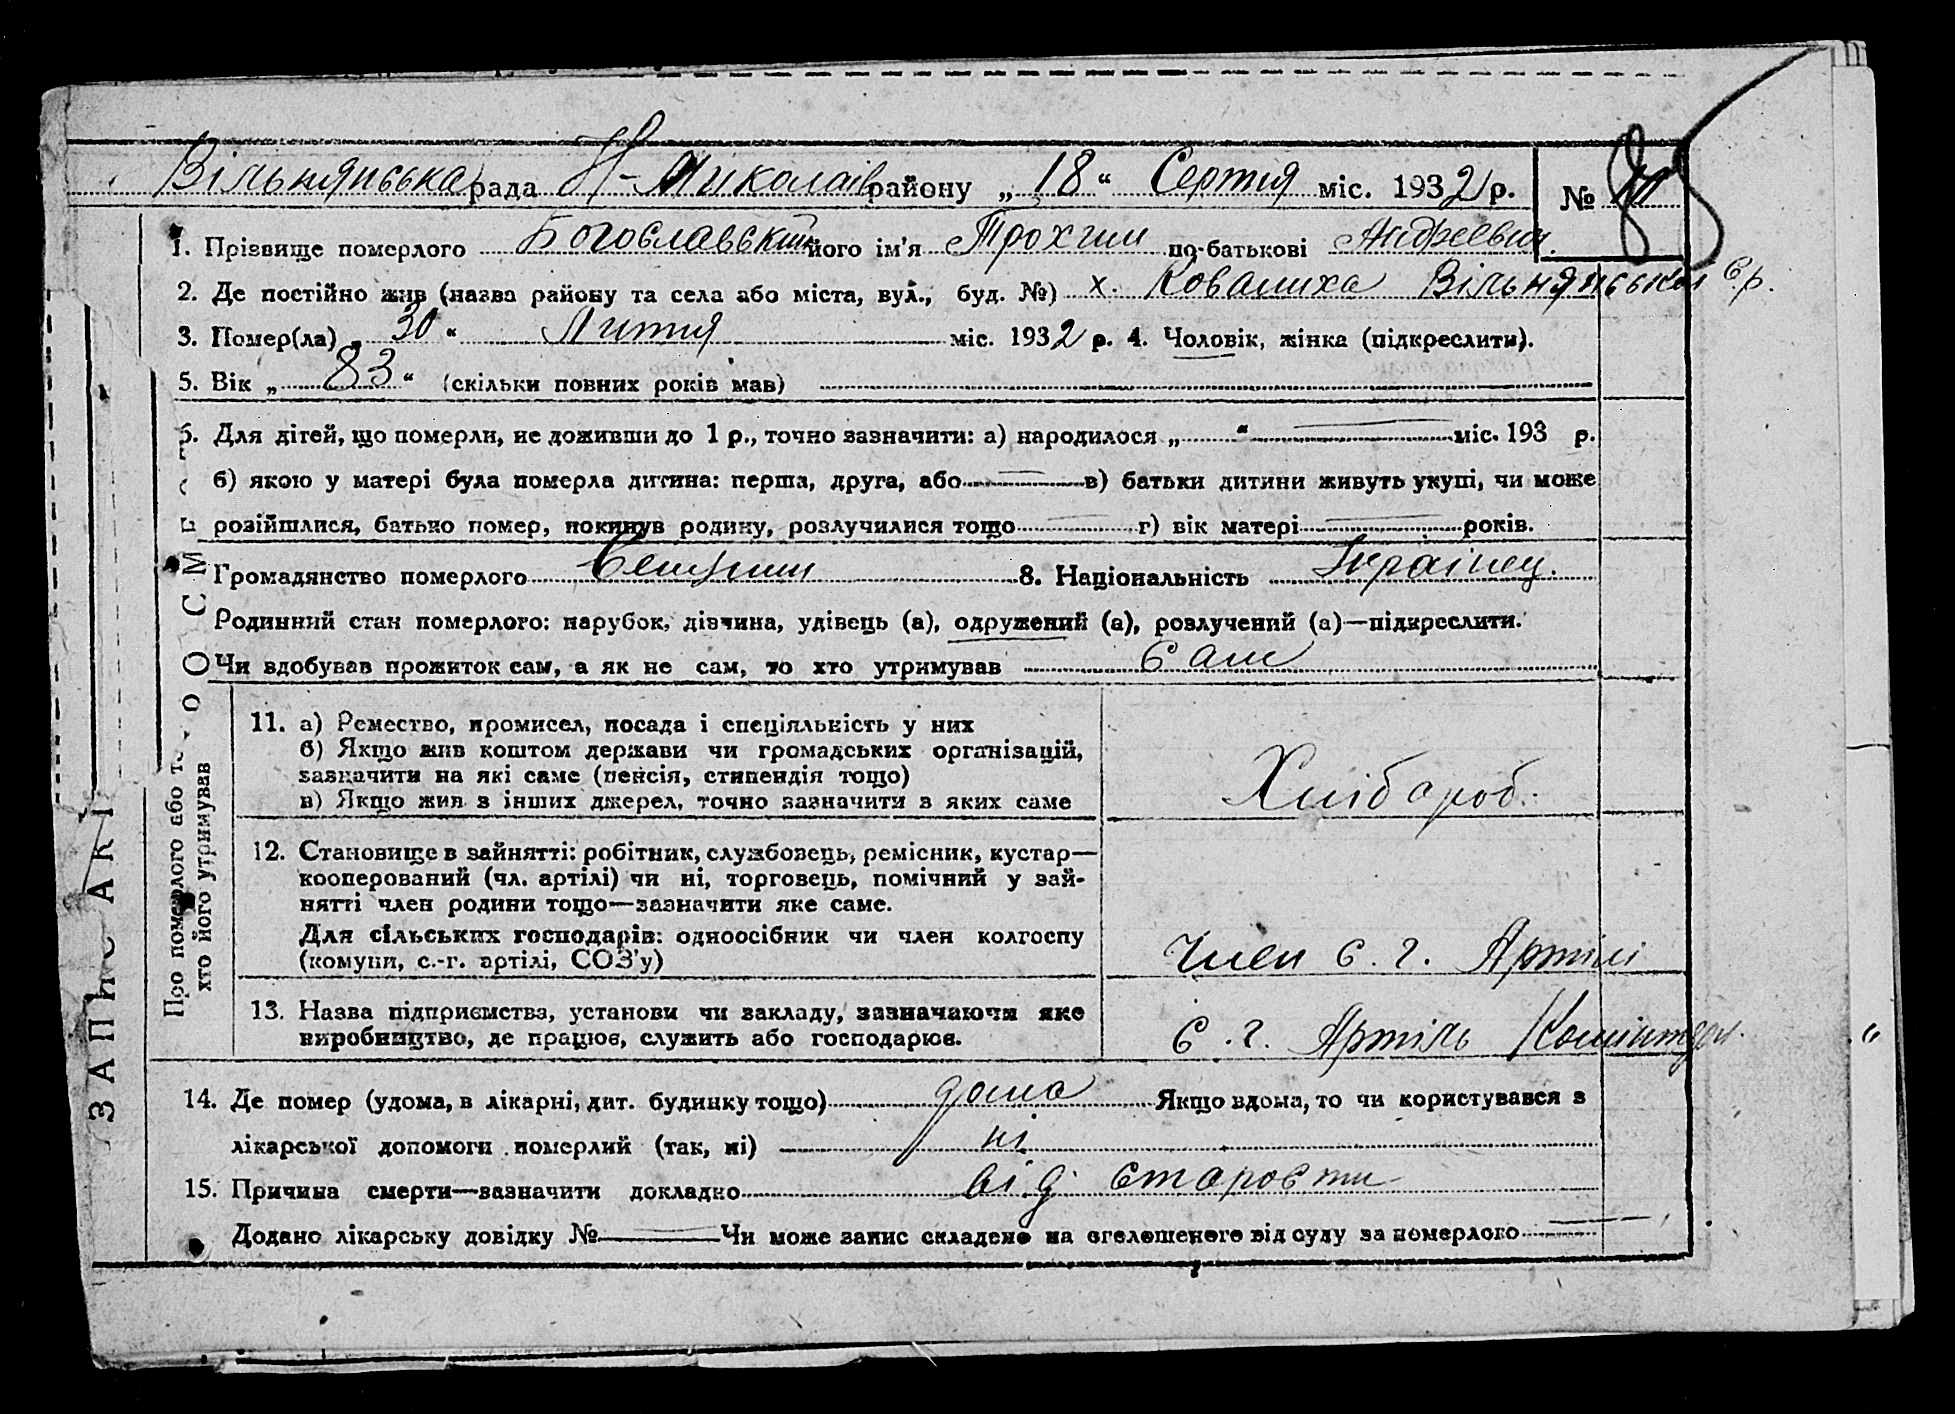 Вільнянська рада Н-Миколаїв району „18“ Серпня міс. 1932 р. №
1. Прізвище померлого Богославський його ім'я Трохим по-батькові Андреевич.
2. Де постійно жив (назва району та села або міста, вул., буд. №) х. Ковалиха Вільнянської с/р.
3. Помер(ла) „30“ Липня міс. 1932 р. 4. Чоловік, жінка (підкреслити).
5. Вік „83“ (скільки повних років мав)
6. Для дітей, що померли, не доживши до 1 р., точно зазначити: а) народилося „ “ міс. 193 р.
б) якою у матері була померла дитина: перша, друга, або в) батьки дитини живуть укупі, чи може
розійшлися, батько помер, покинув родину, розлучилися тощо г) вік матері років.
Громадянство померлого 8. Національність Українец.
Родинний стан померлого: парубок, дівчина, удівець (а), одружений (а), розлучений (а)—підкреслити.
Чи здобував прожиток сам, а як не сам, то хто утримував Сам
11. а) Ремество, промисел, посада і спеціяльність у них
б) Якщо жив коштом держави чи громадських організацій,
зазначити на які саме (пенсія, стипендія тощо)
в) Якщо жив з інших джерел, точно зазначити з яких саме
Хлібороб.
12. Становище в зайнятті: робітник, службовець, ремісник, кустар—
кооперований (чл. артілі) чи ні, торговець, помічний у зай-
нятті член родини тощо—зазначити яке саме.
Для сільських господарів: одноосібник чи член колгоспу
(комуни, с.-г. артілі, СОЗ'у)
Член с. г. Артілі
13. Назва підприємства, установи чи закладу, зазначаючи яке
виробництво, де працює, служить або господарює.
с. г. Артіль Комінтерн.
14. Де помер (удома, в лікарні, дит. будинку тощо) дома Якщо вдома, то чи користувався з
лікарської допомоги померлий (так, ні) ні
15. Причина смерти—зазначити докладно від старости
Додано лікарську довідку № Чи може запис складено на оголошеного від суду за померлого
ЗАПИС АКТ
О СМЕРТ
Про померлого або то
хто його утримував